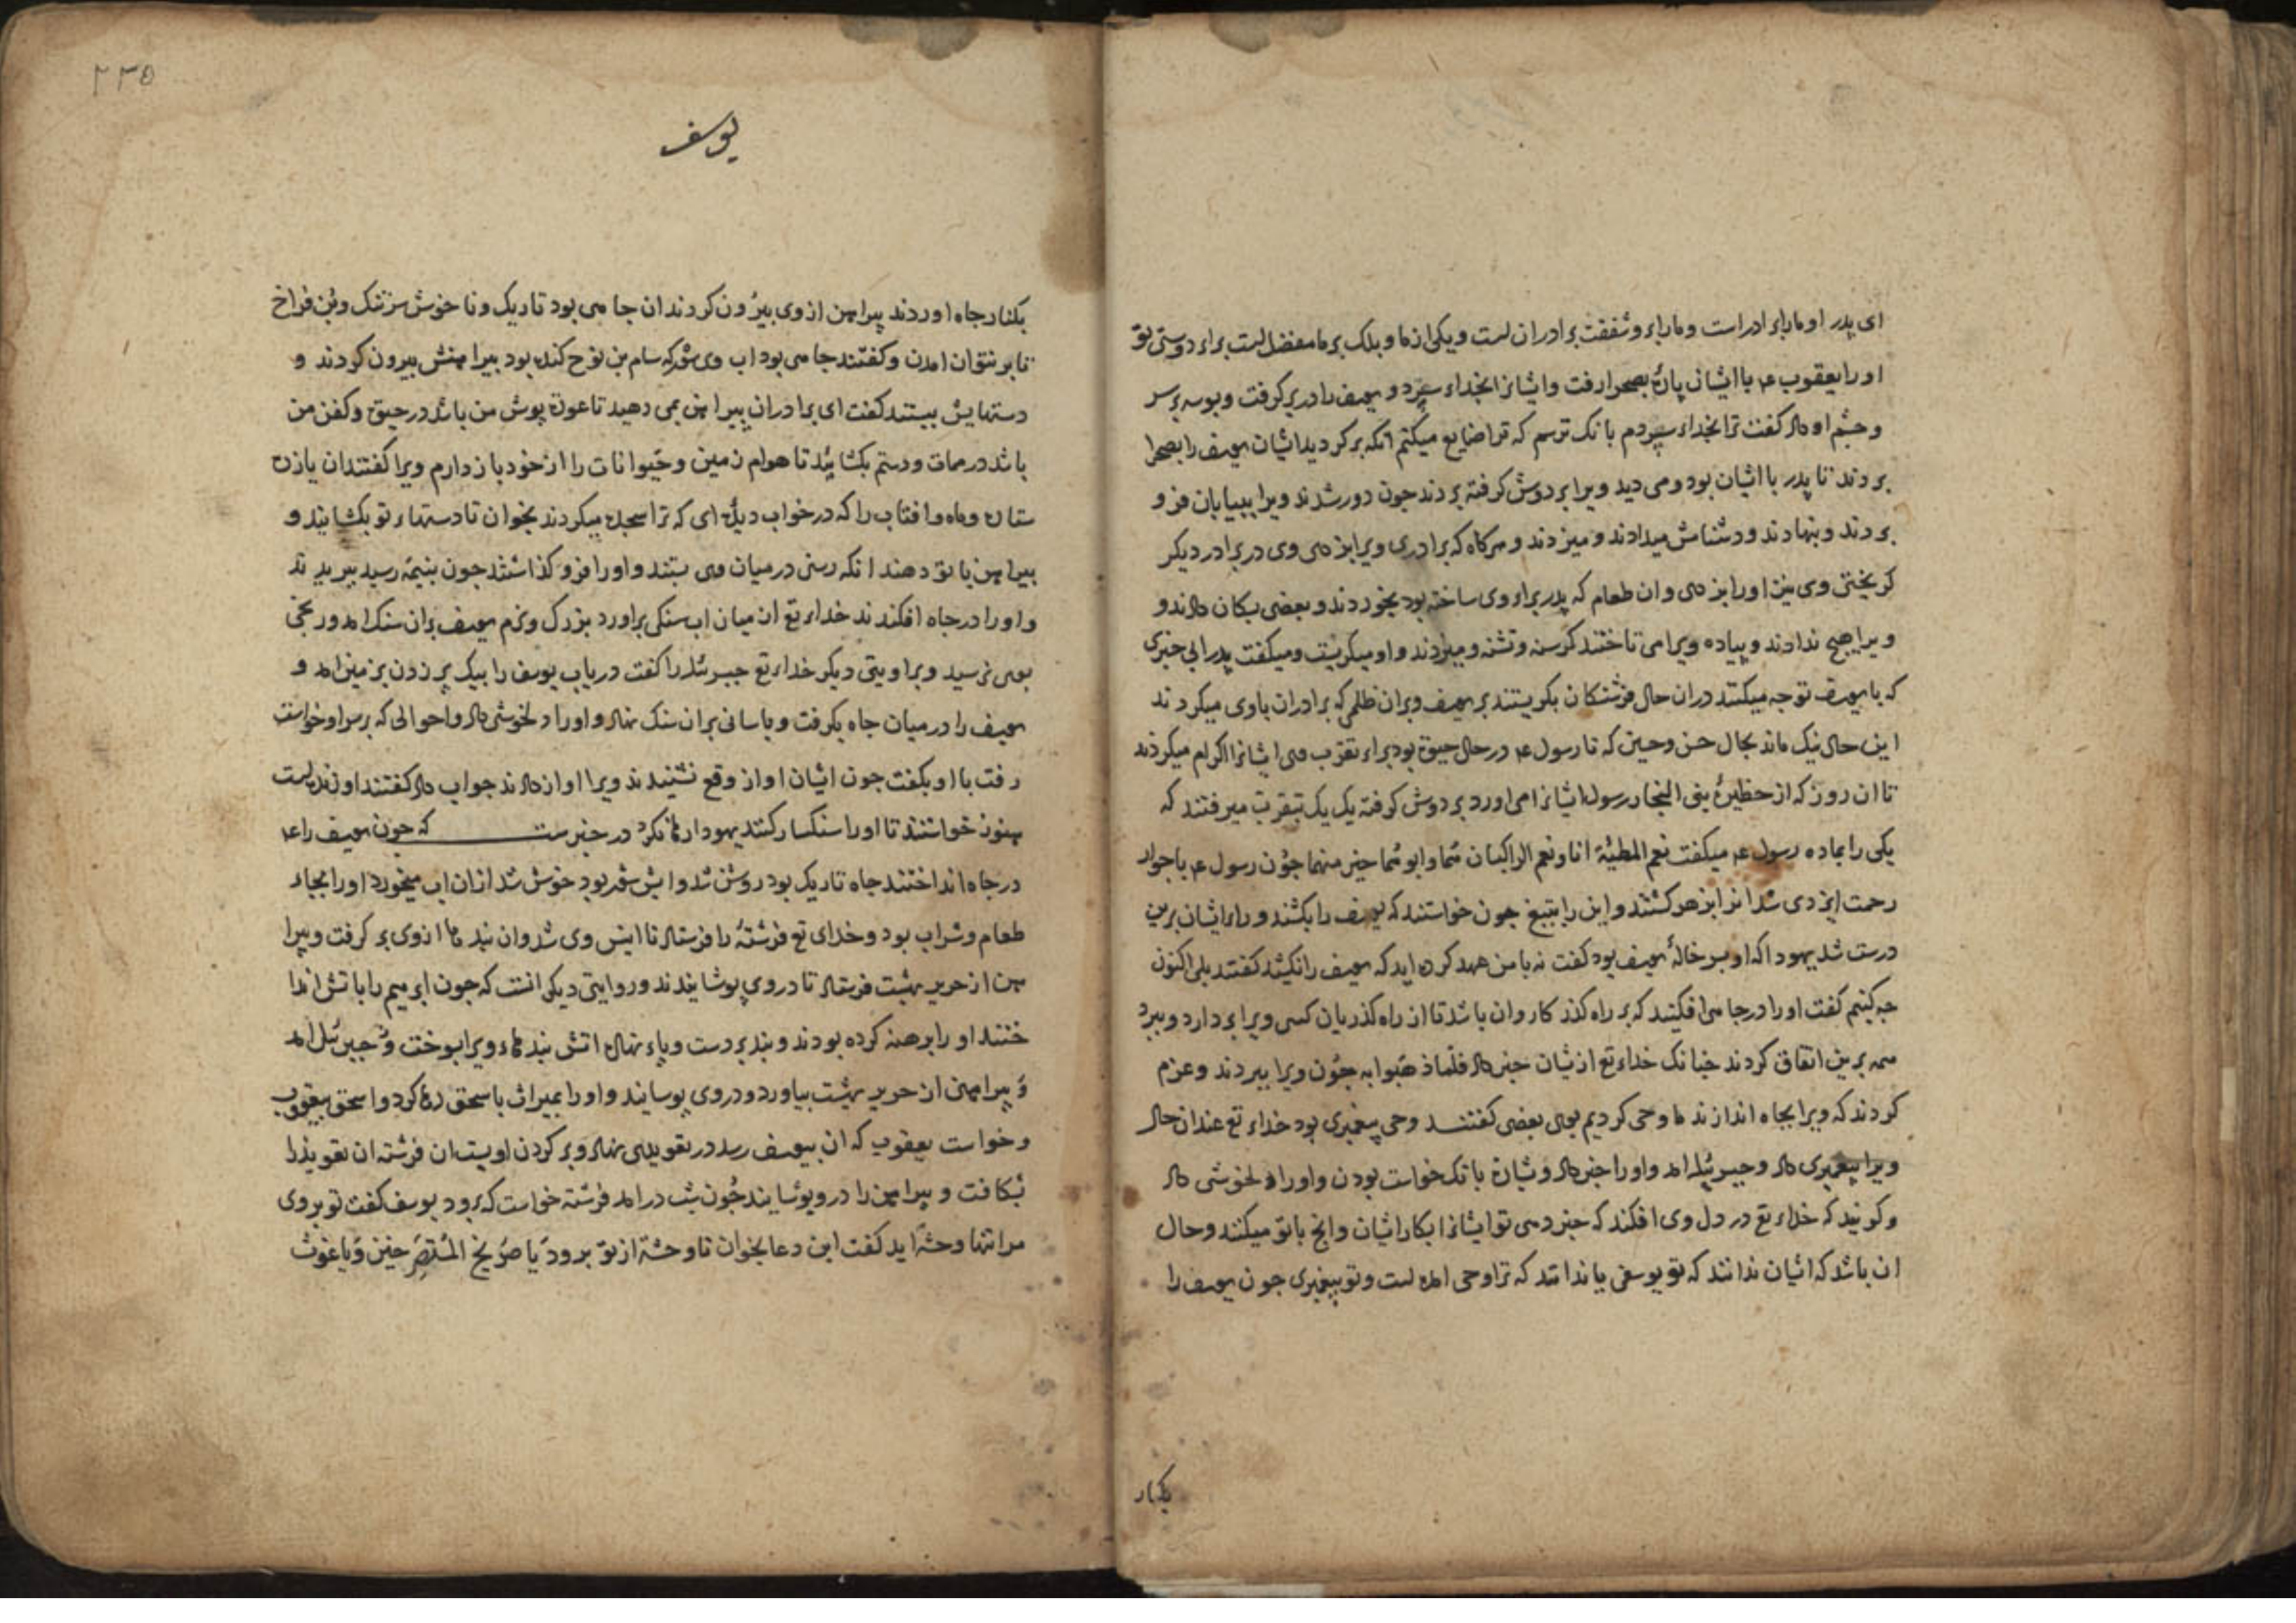 ای پدر او مارا برادراست و مارا برو شفقت برادران است و یکی از ما و بلک بر ما مفضل است براء دوستی تو
او را یعقوب ع‍ با ایشان پارهٔ بصحرا رفت و ایشانرا بخداء سپرد و یوسف را در بر کرفت و بوسه بر سر
و چشم او داد کفت ترا بخداء سپردم بانک ترسم که ترا ضایع میکنم انکه بر کردید ایشان یوسف را بصحرا
بردند تا پدر با ایشان بود و می دید ویرا بر دوش کرفته بردند جون دور شدند ویرا ببیابان فرو
بردند و بنهادند و دشنامش میدادند و میزدند و هرکاه که برادری ویرا بزدی وی در برادر دیکر
کریختی وی نیز اورا بزدی و ان طعام که پدر براء وی ساخته بود بخوردند و بعضی بسکان دادند و
ویرا هیج ندادند و پیاده ویرا می تاختند کرسنه و تشنه و میزدند و او میکریست و میکفت پدر ابی خبری
که با یوسف توجه میکنند دران حال فرشتکان بکریستند بر یوسف و بران ظلمی که برادران باوی میکردند
این حال نیک ماند بحال حسن و حسین که تا رسول ع‍ در حال حیوة بود براء تقرب می ایشانرا اکرام میکردند
تا ان روز که از حظیرهٔ بنی النجار رسول ایشانرا می اورد بر دوش کرفته یک یک بتقرب میرفتند که
یکی را بماده رسول ع‍ میکفت نعم المطیّة انا و نعم الراکبان شما و ابو شما خیر منهما جون رسول ع‍ با جوار
رحمت ایزدی شد انرا بزهر کشتند و این را بتیغ جون خواستند که یوسف را بکشند و راء ایشان برین
درست شد یهودا که او پسر خالهٔ یوسف بود کفت نه با من عهد کرده اید که یوسف را نکشید کفتند بلی اکنون
جه کنیم کفت او را در جاهی افکنید که بر راه کذر کاروان باشد تا از راه کذریان کسی ویرا بر دارد و ببرد
همه برین اتفاق کردند جنانک خداء تع از یشان خبر داد فلمّا ذهبوا به جون ویرا ببردند و عزم
کردند که ویرا بجاه اندازند ما وحی کردیم بوی بعضی کفتند وحی پیغمبری بود خداء تع عند ان حال
ویرا پیغمبری داد و جبرئیل امد و اورا خبر داد و بشارة بانک خواست بودن و اورا دلخوشی داد
و کویند که خداء تع در دل وی افکند که خبر دهی تو ایشانرا بکار ایشان و انج باتو میکنند و حال
ان باشد که ایشان ندانند که تو یوسفی یا ندانند که ترا وحی امده است و تو پیغمبری جون یوسف را
بکنار
۲۳۵
یوسف
بکنار جاه اوردند پیراهن از وی بیرون کردند ان جاهی بود تاریک و ناخوش سرتنک و بن فراخ
تا بر نتوان امدن و کفتند جاهی بود اب وی شور که سام بن نوح کنده بود پیراهنش بیرون کردند و
دستهایش ببستند کفت ای برادران پیراهن بمن دهید تا عورة پوش من باشد در حیوة و کفن من
باشد در ممات و دستم بکشائید تا هوام زمین و حیوانات را از خود باز دارم ویرا کفتند ان یازده
ستاره و ماه و افتاب را که در خواب دیدهٔ ای که ترا سجده میکردند بخوان تا دستهاء تو بکشایند و
پیراهن با تو دهند انکه رسنی در میان وی بستند و او را فرو کذاشتند جون بنیمه رسید ببریدند
و او را در جاه افکندند خداء تع ان میان اب سنکی براورد بزرک و نرم یوسف بران سنک امد و رنجی
بوی نرسید و بروایتی دیکر خداء تع جبرئیل را کفت دریاب یوسف را بیک پر زدن بر زمین امد و
یوسف را در میان جاه بکرفت و باسانی بران سنک نهاد و اورا دلخوشی داد و احوالی که بر سر او خواست
رفت با او بکفت جون ایشان اواز وقع نشنیدند ویرا اواز دادند جواب داد کفتند او زنده است
هنوز خواستند تا اورا سنکسار کنند یهودا رها نکرد در خبرست که جون یوسف را ع‍
در جاه انداختند جاه تاریک بود روشن شد و ابش شور بود خوش شد ازان اب میخورد اورا بجاء
طعام و شراب بود و خدای تع فرشتهٔ را فرستاد تا انیس وی شد و ان بندها از وی بر کرفت و پیرا
هن از حریر بهشت فرستاد تا در وی پوشانیدند و روایتی دیکر انست که جون ابرهیم را باتش اندا
ختند او را برهنه کرده بودند و بند بر دست و پاء نهاده اتش بندهاء ویرا بسوخت و جبرئیل امد
و پیراهنی از حریر بهشت بیاورد و در وی پوسانید و اورا بمیراث باسحق رها کرد و اسحق بیعقوب
و خواست یعقوب که ان بیوسف رسد در تعویذی نهاد و بر کردن او بست ان فرشته ان تعویذ را
بشکافت و پیراهن را در و پوشانید جون شب درامد فرشته خواست که برود یوسف کفت تو بروی
مرا تنها وحشة اید کفت این دعا بخوان تا وحشة از تو برود یا صریخ المستصرخین و یا غوث